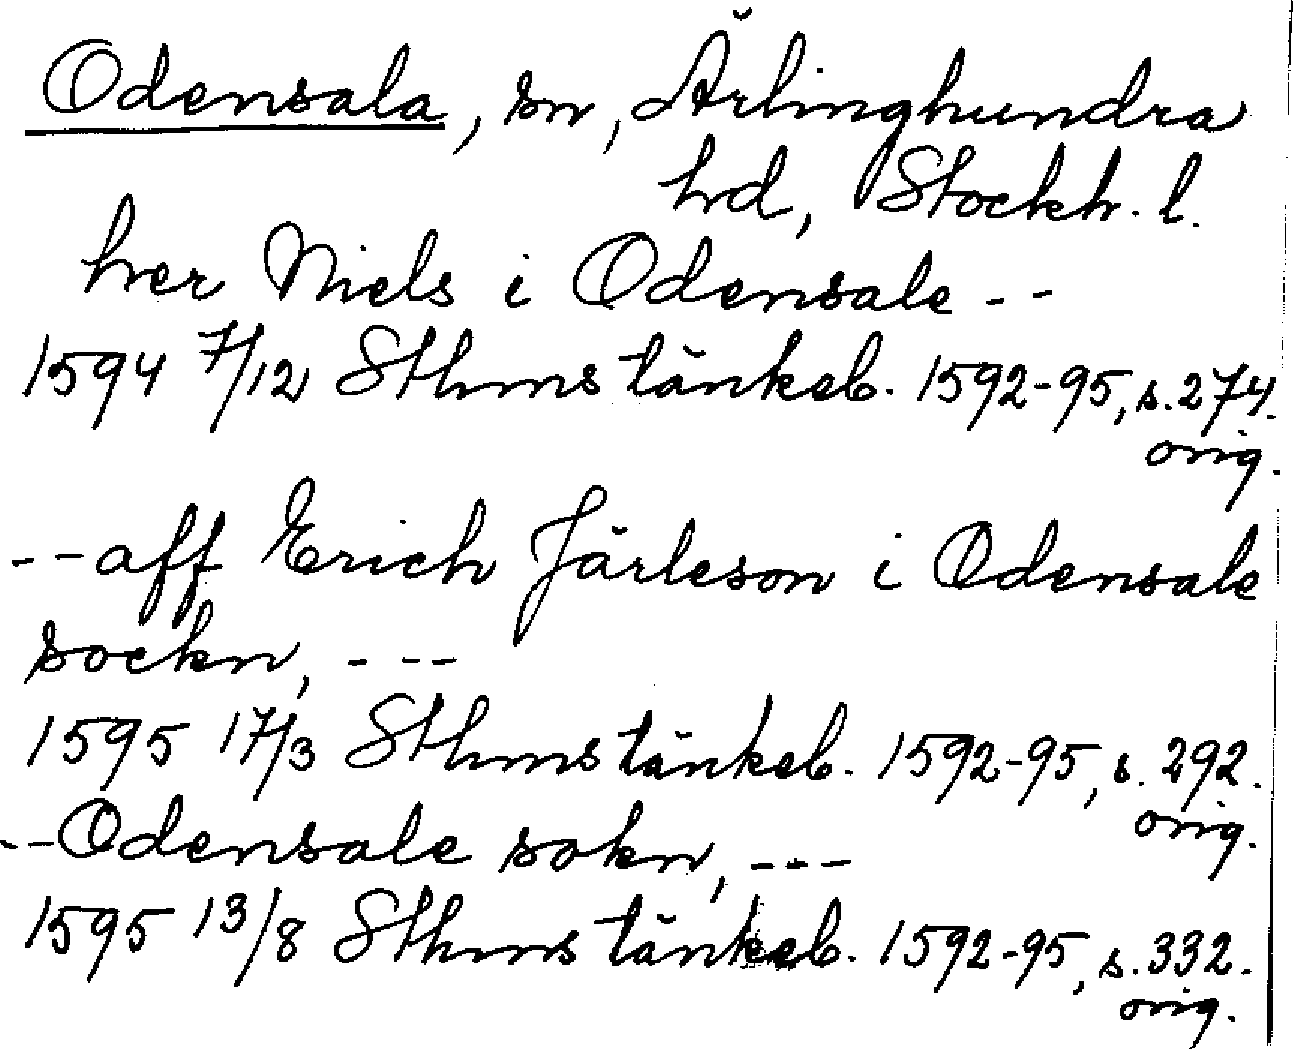 Odensala, sn, Ärlinghundra
hd, Stockh. l.
her Niels i Odensale --
1594 7/12 Sthms tänkeb. 1592-95, s. 274.
orig.
--aff Erich Järleson i Odensale
sockn, ---
1595 17/3 Sthms tänkeb. 1592-95, s. 292.
orig.
--Odensale sokn, ---
1595 13/8 Sthms tänkeb. 1592-95, s. 332.
orig.